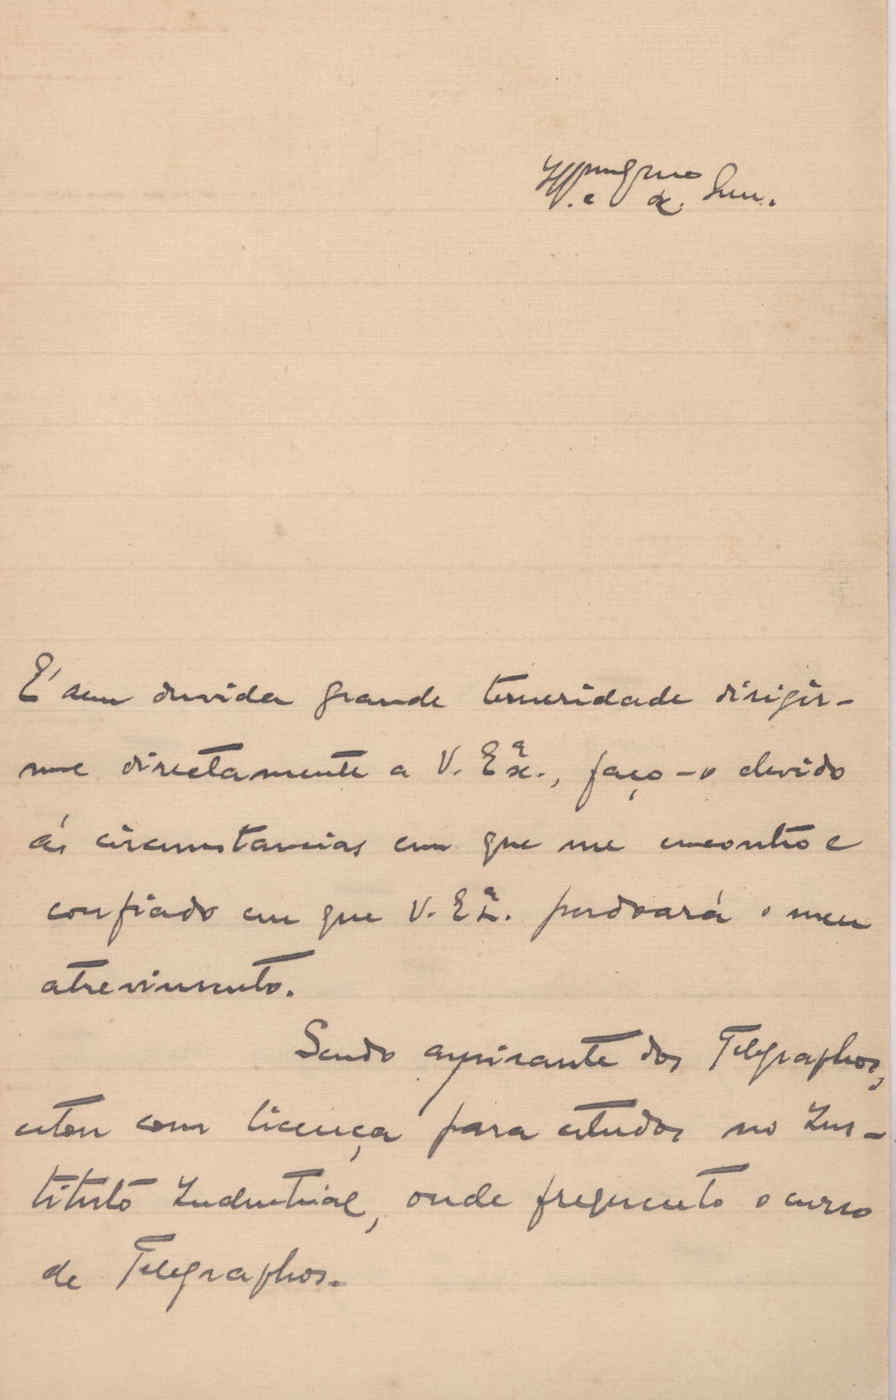 É sem duvida grande temeridade dirigir-
me directamente a V. Exª., faço-o devido
ás circumstancias em que me encontro e
confiado em que V. Exª. perdoará o meu
atrevimento.
Sendo aspirante dos Telegraphos,
estou com licença para estudos no Ins-
tituto Industrial, onde frequento o curso
de Telegraphos.